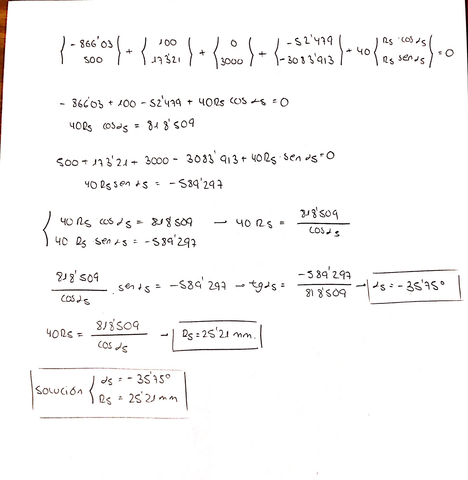 {-866'03 500} + {100 173'21} + {0 3000} + {-52'479 -3083'913} + 40 {Rs cos αs Rs sen αs} = 0
- 866'03 + 100 - 52'479 + 40Rs cos αs = 0
40Rs cos αs = 818'509
500 + 173'21 + 3000 - 3083'913 + 40Rs sen αs = 0
40 Rs sen αs = -589'297
{ 40 Rs cos αs = 818'509 → 40 Rs = 818'509 / cos αs
40 Rs sen αs = -589'297
818'509 / cos αs · sen αs = -589'297 → tg αs = -589'297 / 818'509 → αs = -35'75º
40Rs = 818'509 / cos αs → Rs = 25'21 mm.
SOLUCIÓN { αs = -35'75º
Rs = 25'21 mm